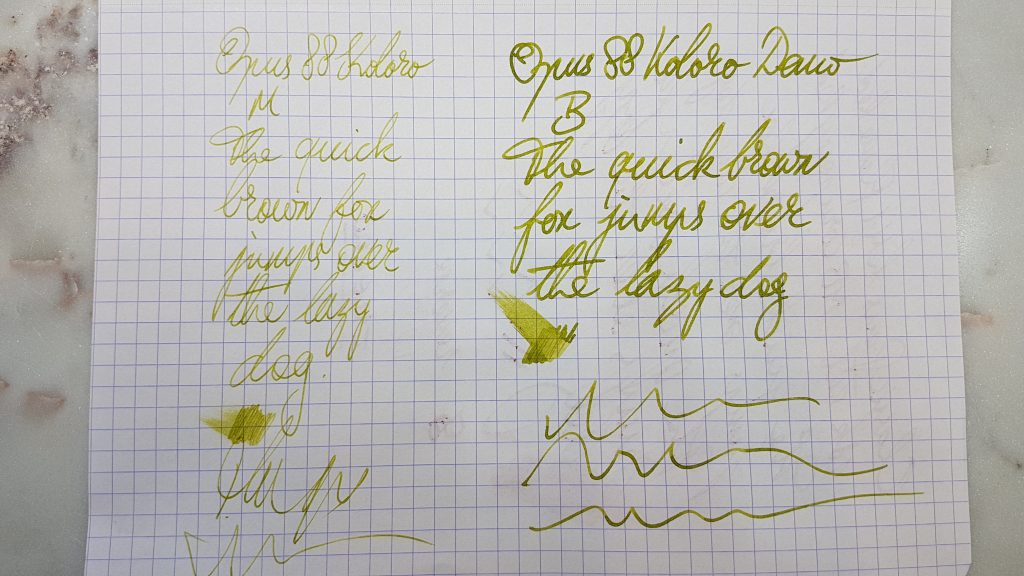 Opus 88 Koloro
M
The quick
brown fox
jumps over
the lazy
dog.
Opus 88 Koloro Demo
B
The quick brown
fox jumps over
the lazy dog